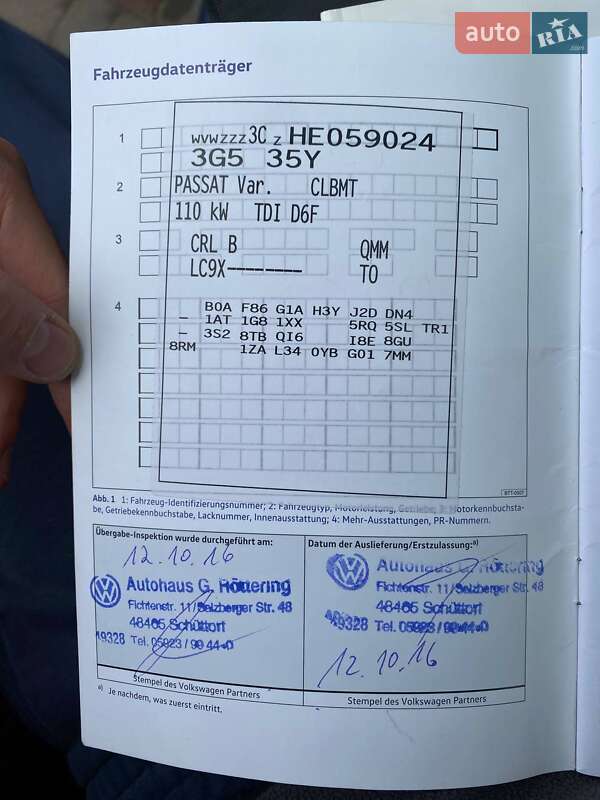 auto RIA .com
Fahrzeugdatenträger
1
WVWZZZ3C Z HE059024
3G5 35Y
2
PASSAT Var. CLBMT
110 kW TDI D6F
3
CRL B QMM
LC9X-------- TO
4
B0A F86 G1A H3Y J2D DN4
- 1AT 1G8 1XX 5RQ 5SL TR1
- 3S2 8TB QI6 I8E 8GU
8RM 1ZA L34 0YB G01 7MM
BTT-0507
Abb. 1 1: Fahrzeug-Identifizierungsnummer; 2: Fahrzeugtyp, Motorleistung, Getriebe; 3: Motorkennbuchsta-
be, Getriebekennbuchstabe, Lacknummer, Innenausstattung; 4: Mehr-Ausstattungen, PR-Nummern.
Übergabe-Inspektion wurde durchgeführt am:
12.10.16
Autohaus G. Höttering
Fichtenstr. 11/Salzberger Str. 48
48465 Schüttorf
49328 Tel. 05923/99 44-0
Stempel des Volkswagen Partners
Datum der Auslieferung/Erstzulassung:a)
Autohaus G. Höttering
Fichtenstr. 11/Salzberger Str. 48
48465 Schüttorf
49328 Tel. 05923/99 44-0
12.10.16
Stempel des Volkswagen Partners
a) Je nachdem, was zuerst eintritt.